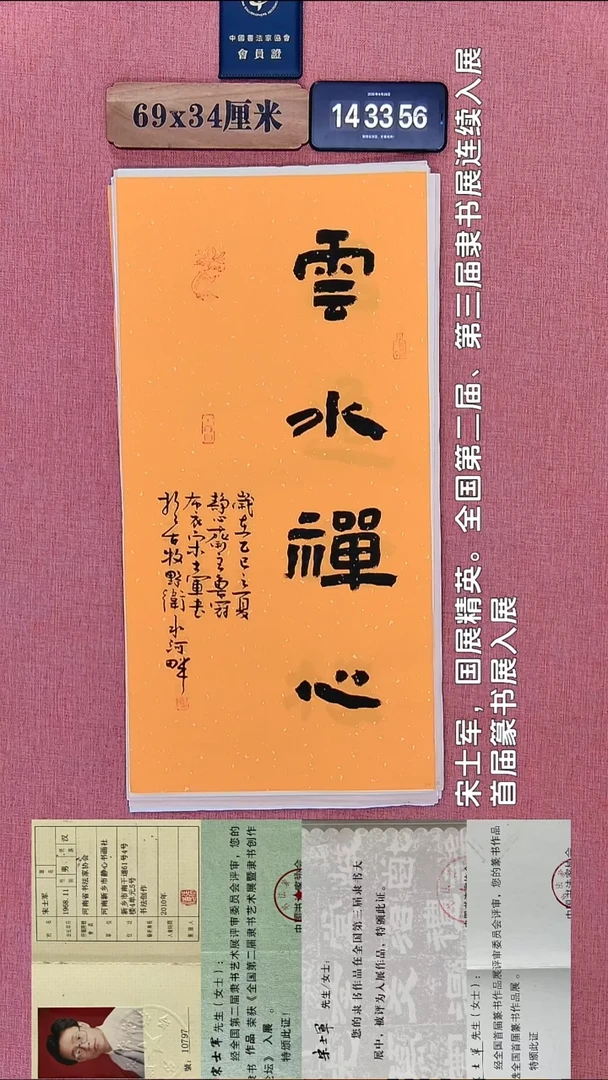 中國書法家協會
會員證
69x34厘米
14 33 56
雲水禪心
歲在乙巳之夏
靜心齋主曹州
布衣宋士軍書
於古牧野衛水河畔
宋士军，国展精英。全国第二届、第三届隶书展连续入展
首届篆书展入展
宋士军
男
汉
1968.11
河南省书法家协会
河南新乡市静心书画社
新乡市南干道61号4号
楼4单元5号
书法创作
2010年
號：10797
宋士军 先生（女士）：
经全国第二届隶书艺术展评审委员会评审，您的
隶书 作品 荣获《全国第二届隶书艺术展暨隶书创作
论坛》 入展 。
特颁此证！
宋士军 先生/女士：
您的隶书作品在全国第三届隶书大
展中，被评为入展作品，特颁此证。
士军 先生（女士）：
经首届篆书作品展评审委员会评审，您的篆书作品
全国首届篆书作品展。
特颁此证